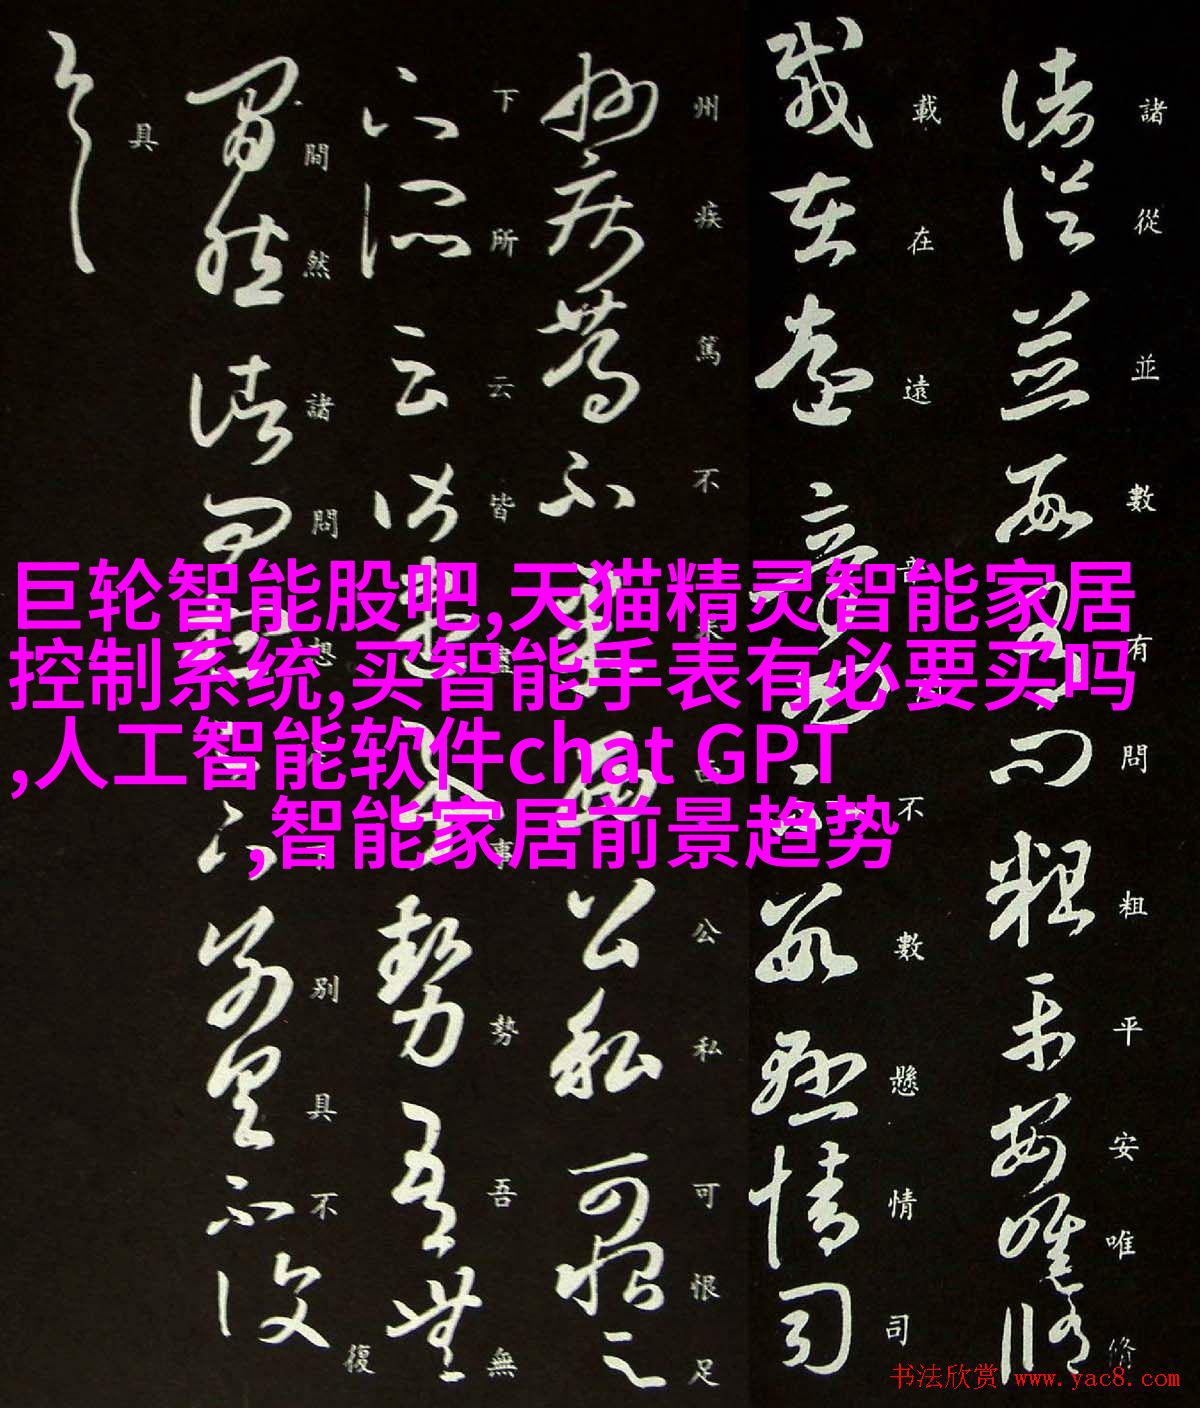 諸從並數有問粗平安唯修
載在遠音問不數懸情司
州疾篤不果西公私可恨足
下所云皆盡事勢吾無
間然諸問想不別具不復
具
巨轮智能股吧,天猫精灵智能家居
控制系统,买智能手表有必要买吗
,人工智能软件chat GPT
,智能家居前景趋势
书法欣赏 www.yac8.com